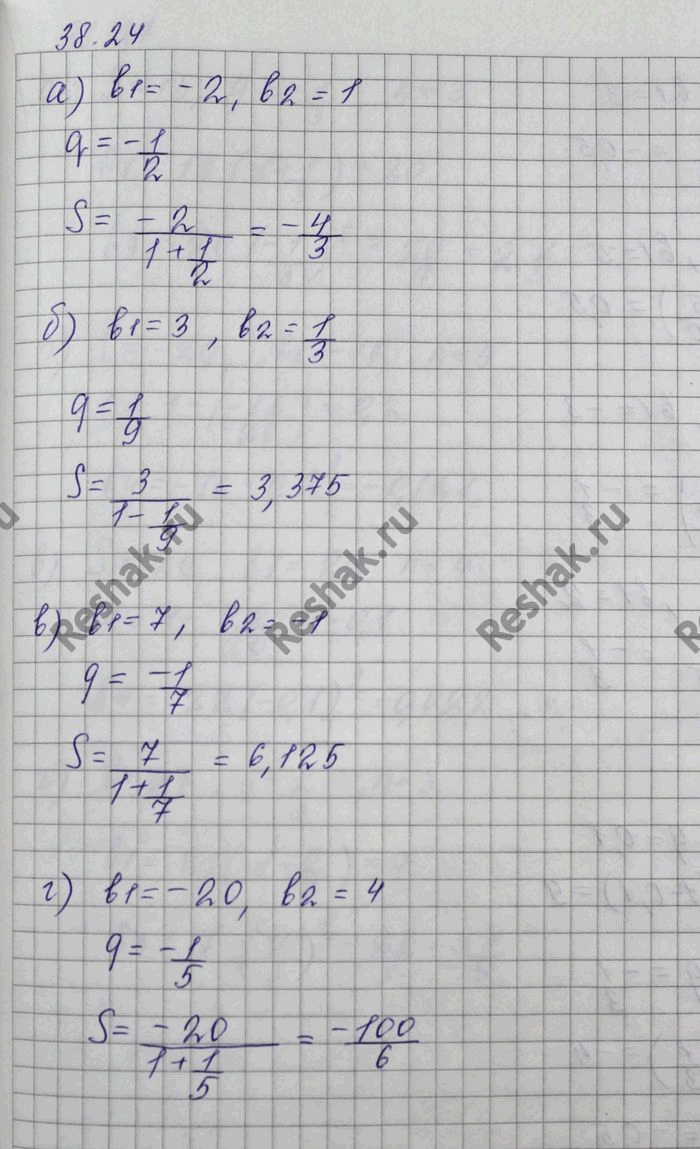 38.24
а) в1 = -2, в2 = 1
q = -1/2
S = -2/(1+1/2) = -4/3
б) в1 = 3, в2 = 1/3
q = 1/9
S = 3/(1-1/9) = 3,375
Reshak.ru Reshak.ru Reshak.ru
в) в1 = 7, в2 = -1
q = -1/7
S = 7/(1+1/7) = 6,125
г) в1 = -20, в2 = 4
q = -1/5
S = -20/(1+1/5) = -100/6